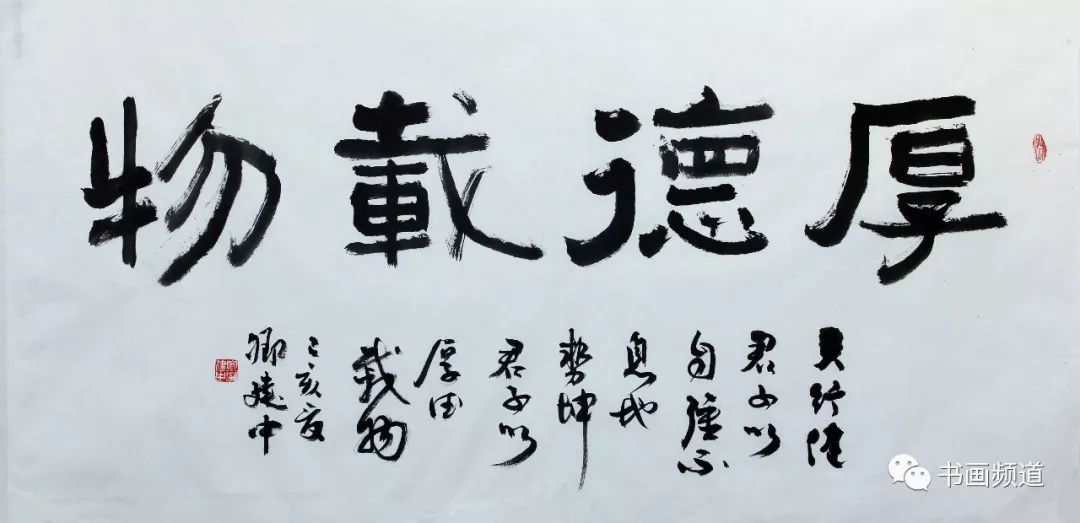 厚德載物
天行健
君子以
自强不
息地
势坤
君子以
厚德
載物
己亥夏
卿建中
书画频道